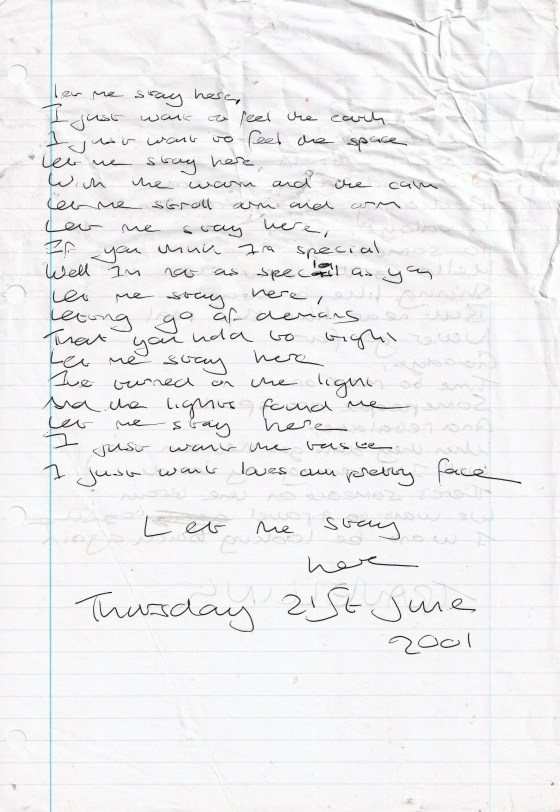 let me stay here,
I just want to feel the earth
I just want to feel the space
Let me stay here
With the warm and the calm
Let me stroll arm and arm
Let me stay here,
If you think I'm special
Well I'm not as special as you
Let me stay here,
Letting go of demons
That you hold to tight
Let me stay here
I've turned on the light
And the lights found me
Let me stay here
I just want the taste
I just want loves own pretty face
Let me stay
here
Thursday 21st June
2001